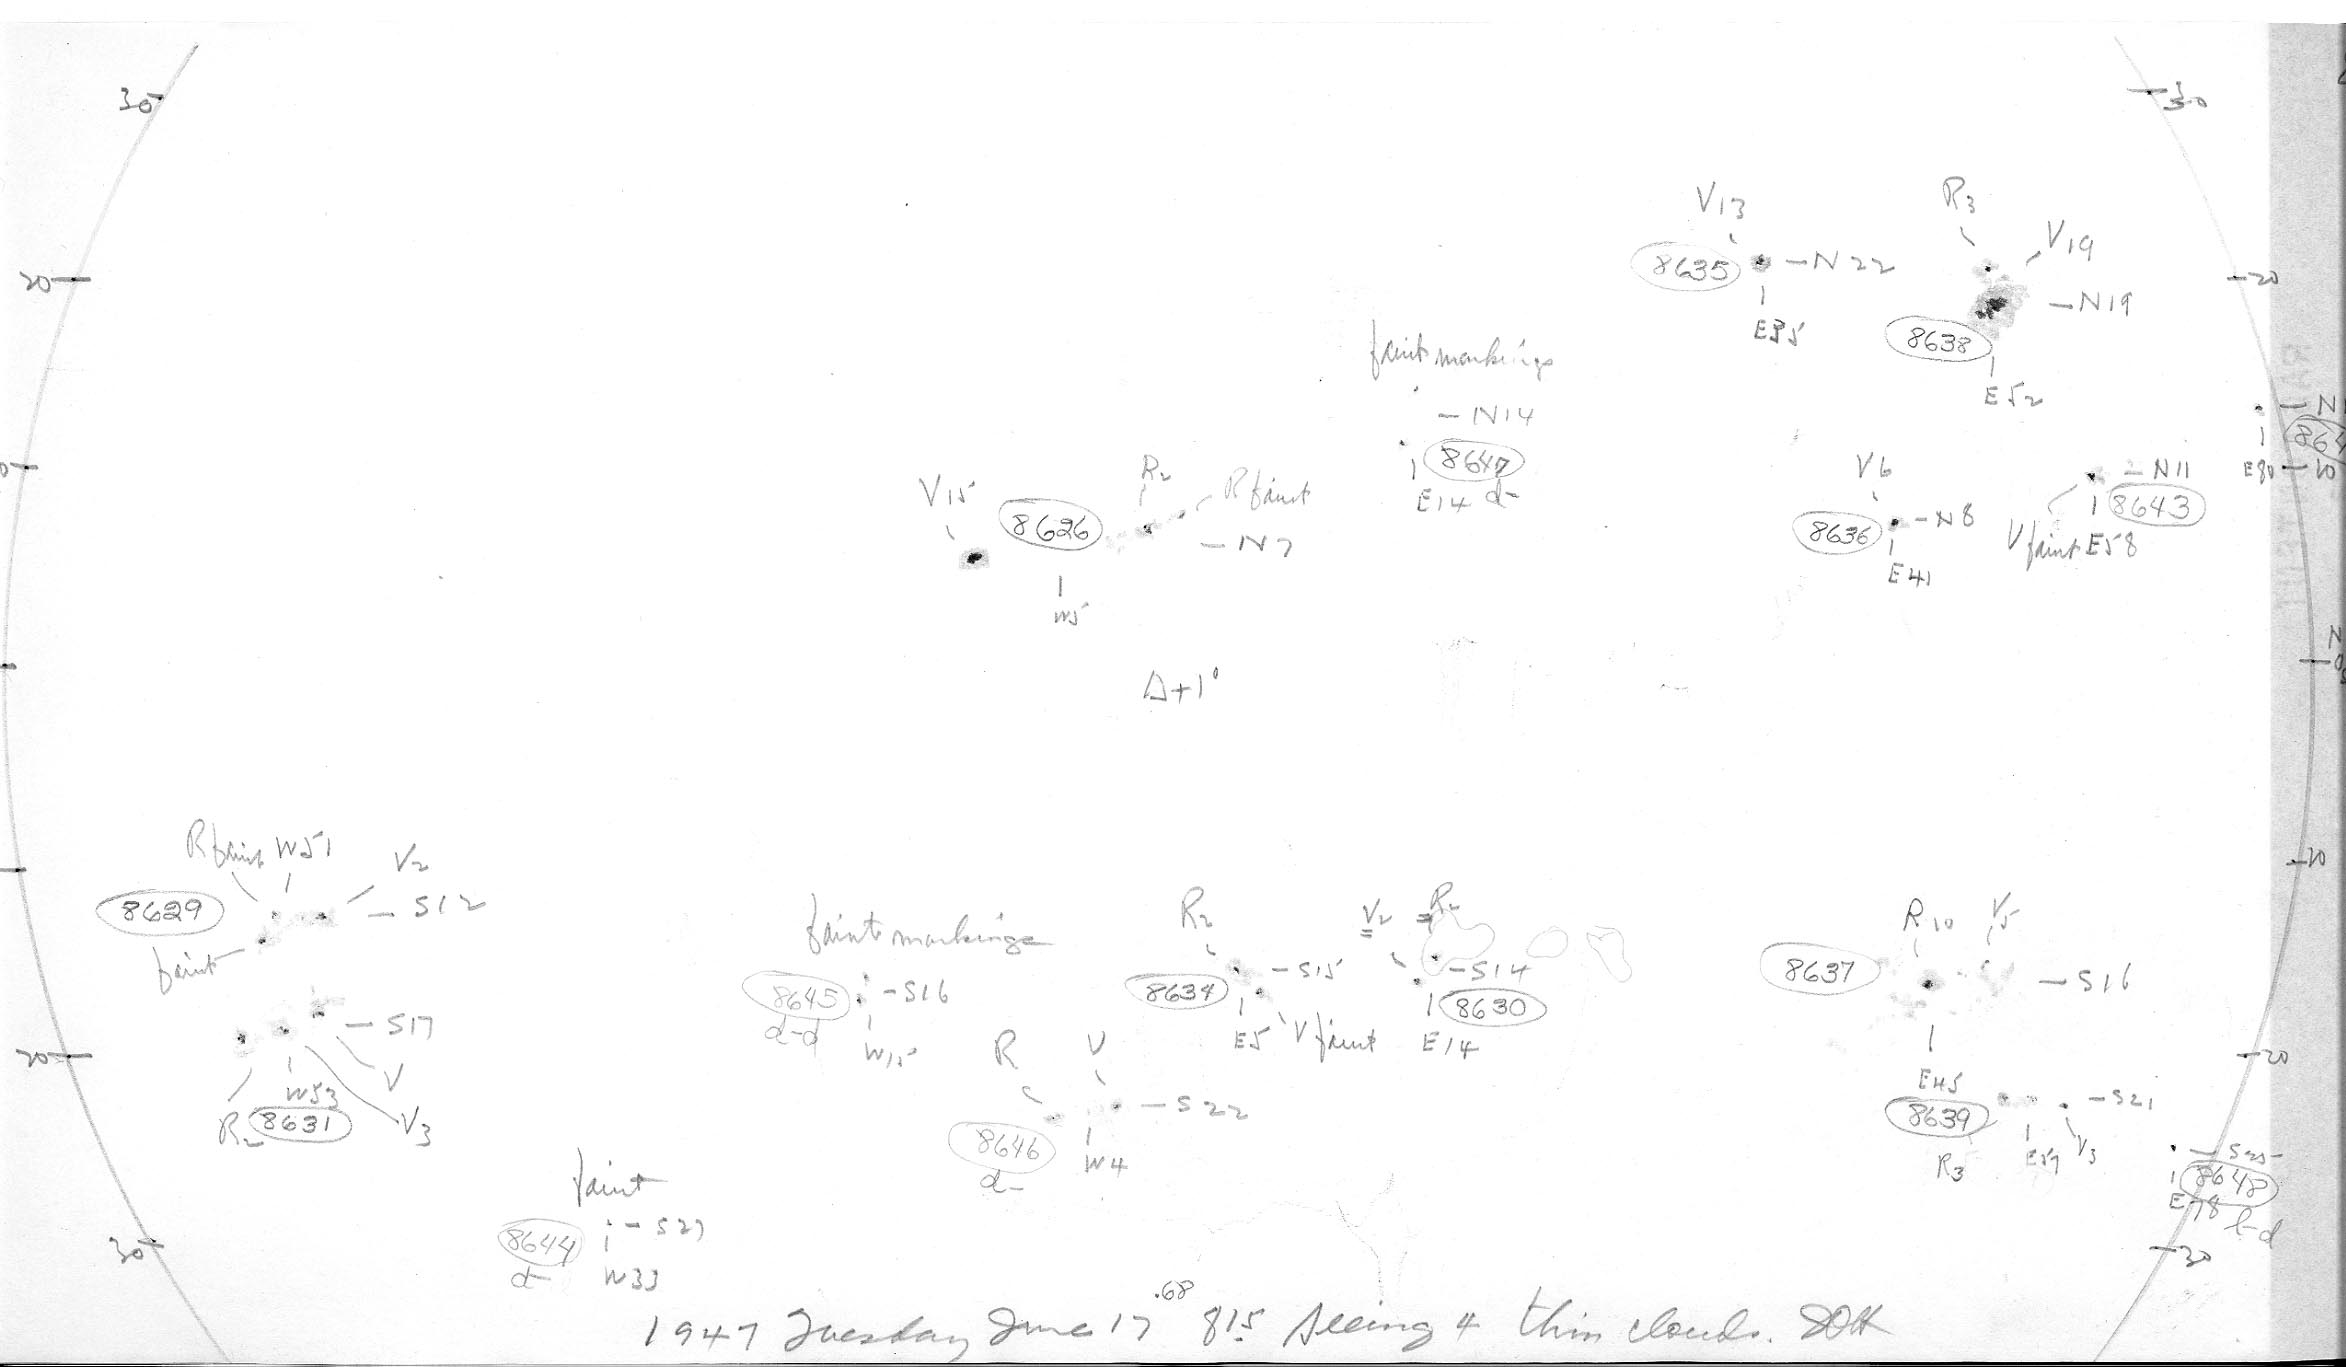 30
30
R3
V13
V19
8635
N22
20
20
N19
E35
8638
faint markings
E52
N14
N
864
V6
N11
E80
10
8647
R2
R faint
V15
E14 d-
8643
8626
N8
8636
N7
V faint E58
E41
W5
N
0
Δ+1°
R faint W51
V2
10
8629
S12
R2
V2
R2
R10
V5
faint markings
faint
S15
S14
8637
S16
8645
S16
8634
8630
S17
d-d
W15
E5
V faint
E14
20
R
V
20
V
W53
E45
R2
8631
V3
S22
8639
S21
8646
W4
d-
R3
E57
V3
S25
faint
8648
E78
S27
l-d
30
8644
30
d-
W33
1947 Tuesday June 17.68 815 Seeing 4 thin clouds.